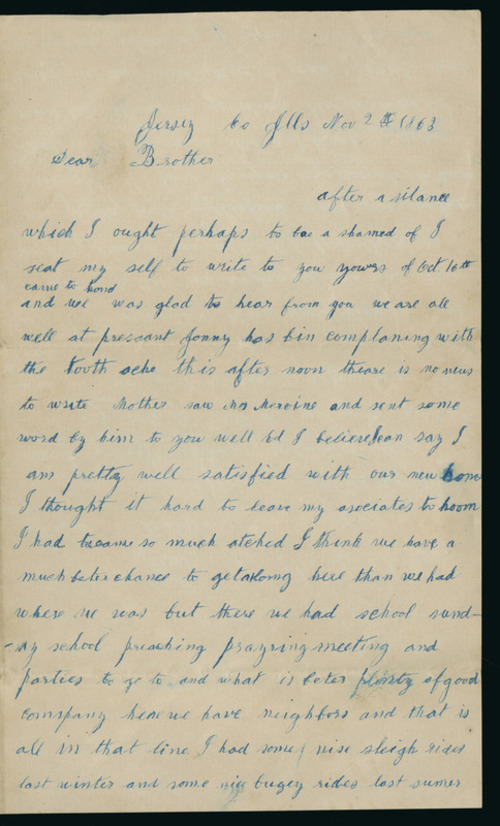 Jersey Co Ills Nov 2 1863
Dear Brother
after a silance
which I ought perhaps to bae a shamed of I
seat my self to write to you yours of Oct 16th
came to hand
and we was glad to hear from you we are all
well at pressant Jonny has bin complaning with
the tooth ache this after noon theare is no news
to write Mother saw and sent some
word by him to you well Ed I believe I can say I
am pretty well satisfied with our new home
I thought it hard to leave my asociates to hoom
I had became so much atched I think we have a
much beter chance to get along here than we had
where we was but there we had school sund-
-ay school preaching prayring meeting and
parties to go to and what is beter plenty of good
company here we have neighbors and that is
all in that line I had some nise sleigh rides
last winter and some nice bugey rides last sumer